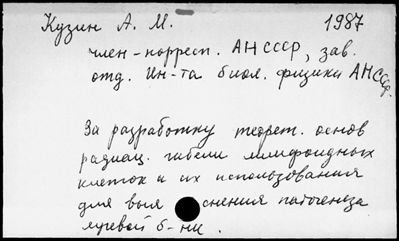 Кузин А. М. 1987
член-корресп. АН СССР, зав.
отд. Ин-та биол. физики АН СССР.
За разработку теорет. основ
радиац. гибели лимфоидных
клеток и их использования
для выяснения патогенеза
лучевой б-ни.